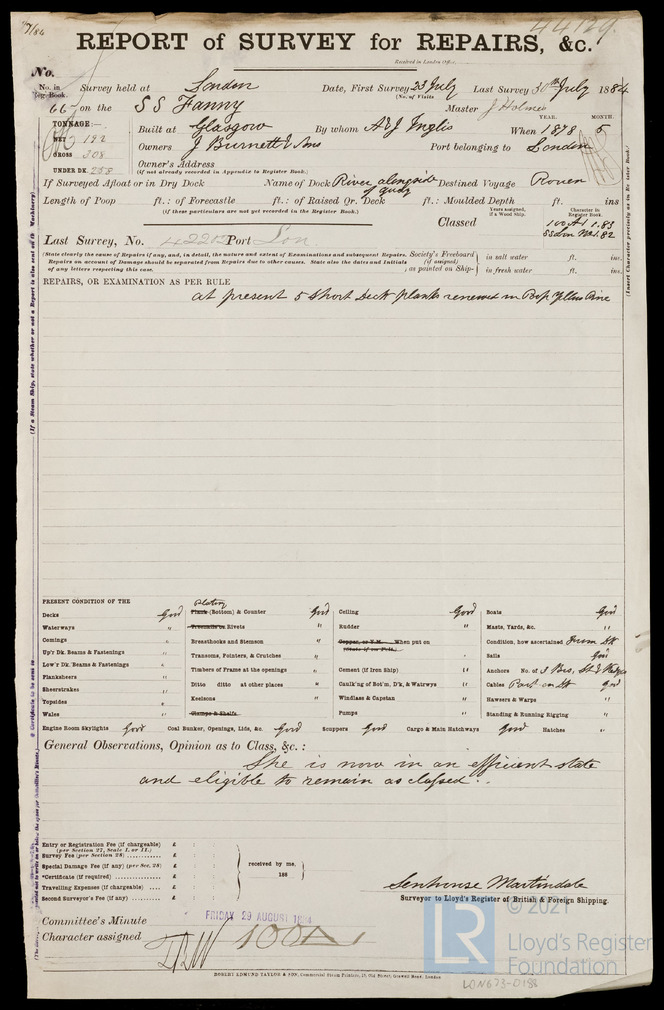 44129
REPORT of SURVEY for REPAIRS, &c.
Received in London Office,
No.
No. in Reg. Book. Survey held at London Date, First Survey 23 July Last Survey 30th July 1884
(No. of Visits
667 on the S S Fanny Master J Holmes
TONNAGE:— YEAR. MONTH.
NET 192 Built at Glasgow By whom A & J Inglis When 1878 5
GROSS 308 Owners J Burnett & Sns Port belonging to London
UNDER DK. 258 Owner's Address
(if not already recorded in Appendix to Register Book.)
If Surveyed Afloat or in Dry Dock Name of Dock River alongside of quay Destined Voyage Rouen
Length of Poop ft.: of Forecastle ft.: of Raised Qr. Deck ft.: Moulded Depth ft. ins
(if these particulars are not yet recorded in the Register Book.)
Years assigned, if a Wood Ship. Character in Register Book.
Classed 100 A1 1.83
Last Survey, No. Port Lon
(State clearly the cause of Repairs if any, and, in detail, the nature and extent of Examinations and subsequent Repairs. Repairs on account of Damage should be separated from Repairs due to other causes. State also the dates and Initials of any letters respecting this case.
Society's Freeboard (if assigned) as painted on Ship- in salt water ft. ins.
in fresh water ft. ins.
REPAIRS, OR EXAMINATION AS PER RULE
at present 5 short deck planks renewed in Poop Yellow Pine
PRESENT CONDITION OF THE
Decks Good Plank Plating (Bottom) & Counter Good Ceiling Good Boats Good
Waterways " Treenails or Rivets " Rudder " Masts, Yards, &c. "
Comings " Breasthooks and Stemson " Copper, or Y.M. When put on (State if on Felt.) Condition, how ascertained From Dk
Up'r Dk. Beams & Fastenings " Transoms, Pointers, & Crutches " Sails Good
Low'r Dk. Beams & Fastenings " Timbers of Frame at the openings " Cement (if Iron Ship) " Anchors No. of 3 Brs, St & Kedge
Planksheers " Ditto ditto at other places " Caulk'ng of Bot'm, D'k, & Watrwys " Cables Part on Dk Good
Sheerstrakes " Keelsons " Windlass & Capstan " Hawsers & Warps "
Topsides " Clamps & Shelfs Pumps " Standing & Running Rigging "
Wales "
Engine Room Skylights Good Coal Bunker, Openings, Lids, &c. Good Scuppers Good Cargo & Main Hatchways Good Hatches "
General Observations, Opinion as to Class, &c.:
She is now in an efficient state
and eligible to remain as classed.
Entry or Registration Fee (if chargeable) £
(per Section 27, Scale I. or II.)
Survey Fee (per Section 28) £
Special Damage Fee (if any) (per Sec. 28) £
*Certificate (if required) £
Travelling Expenses (if chargeable) £
Second Surveyor's Fee (if any) £
received by me,
188
Senhouse Martindale
Surveyor to Lloyd's Register of British & Foreign Shipping.
Committee's Minute FRIDAY 29 AUGUST 1884
Character assigned 100A1
ROBERT EDMUND TAYLOR & SON, Commercial Steam Printers, 19, Old Street, Goswell Road, London
LR © 2021
Lloyd's Register
Foundation
LON673-0188